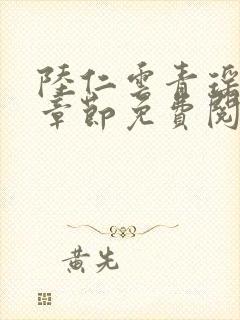 陸仁雲青瑶
章節免費閱
黃先